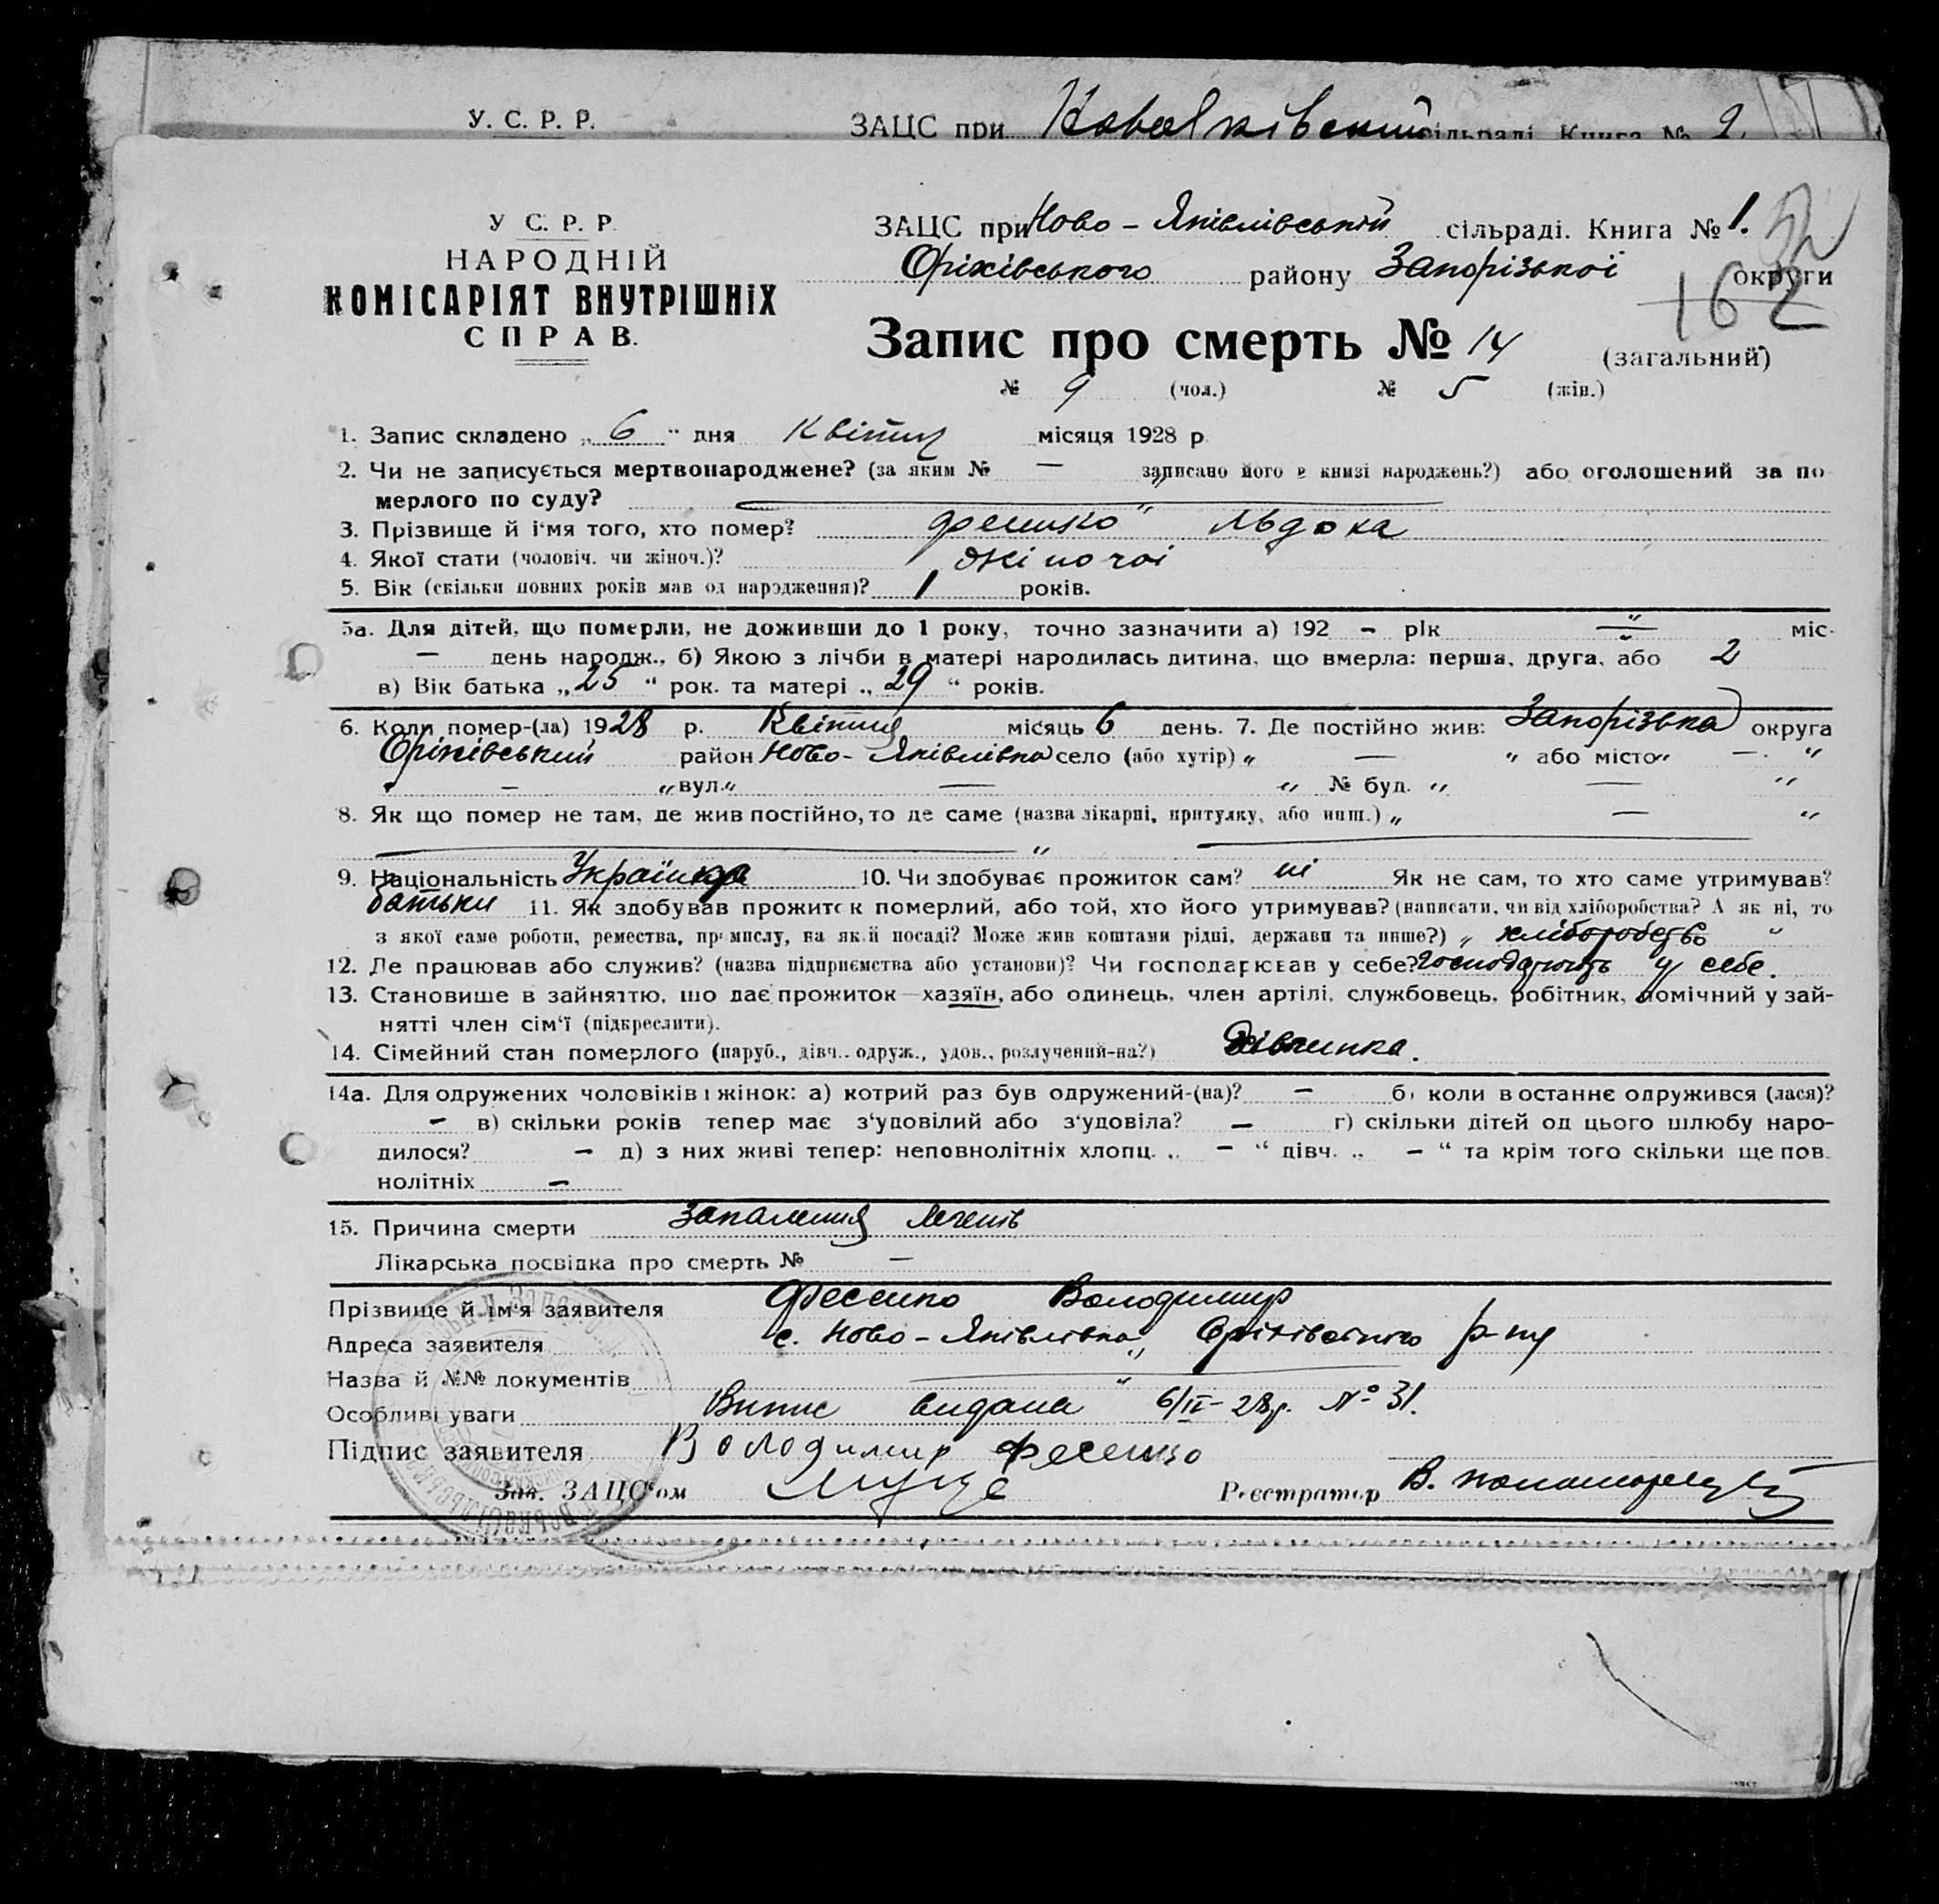 У. С. Р. Р. ЗАЦС при сільраді Книга № 2.
У С. Р. Р.
НАРОДНІЙ
КОМІСАРІЯТ ВНУТРІШНІХ
СПРАВ.
ЗАЦС при Ново - Яківлівській сільраді. Книга № 1.
Оріхівського району Запорізької округи
162
Запис про смерть № 14 (загальний)
№ 9 (чол.) № 5 (жін.)
1. Запис складено „ 6 " дня Квітня місяця 1928 р
2. Чи не записується мертвонароджене? (за яким № — записано його в книзі народжень?) або оголошений за по
мерлого по суду? "
3. Прізвище й ім'я того, хто помер?
4. Якої стати (чоловіч. чи жіноч.)? жіночої
5. Вік (скільки повних років мав од народження)? 1 років.
5а. Для дітей, що померли, не доживши до 1 року, точно зазначити а) 192 - рік — міс-
— день народж., б) Якою з лічби в матері народилась дитина, що вмерла: перша, друга, або 2
в) Вік батька „ 25 " рок. та матері „ 29 " років.
6. Коли помер-(ла) 1928 р. Квітня місяць 6 день. 7. Де постійно жив: Запорізька округа
Оріхівський район Ново - Яківлівка село (або хутір) „ — " або місто „ — "
— „ вул. „ — " № буд. „ — "
8. Як що помер не там, де жив постійно, то де саме (назва лікарні, притулку, або инш.) „ — "
"
9. Національність Українка 10. Чи здобуває прожиток сам? ні Як не сам, то хто саме утримував?
батьки 11. Як здобував прожиток померлий, або той, хто його утримував? (написати, чи від хліборобства? А як ні, то
з якої саме роботи, ремества, промислу, на якій посаді? Може жив коштами рідні, держави та инше?) „ хліборобство "
12. Де працював або служив? (назва підприємства або установи)? Чи господарював у себе? Господарюють у себе.
13. Становище в зайняттю, що дає прожиток—хазяїн, або одинець, член артілі, службовець, робітник, помічний у зай-
нятті член сім'ї (підкреслити).
14. Сімейний стан померлого (паруб., дівч.. одруж., удов., розлучений-на?) Дівчинка.
14а. Для одружених чоловіків і жінок: а) котрий раз був одружений-(на)? — б) коли в останнє одружився (лася)?
— в) скільки років тепер має з'удовілий або з'удовіла? — г) скільки дітей од цього шлюбу наро-
дилося? — д) з них живі тепер: неповнолітніх хлопц. „ — " дівч. „ — " та крім того скільки ще пов
нолітніх —
15. Причина смерти Запалення легенів
Лікарська посвідка про смерть № —
Прізвище й ім'я заявителя Фесенко Володимир
Адреса заявителя с. Ново - Яківлівка, Оріхівського р-ну
Назва й №№ документів "
Особливі уваги Випис видана 6/IV - 28р. № 31.
Підпис заявителя Володимир Фесенко
Зав. ЗАЦС'ом Реєстратор В.